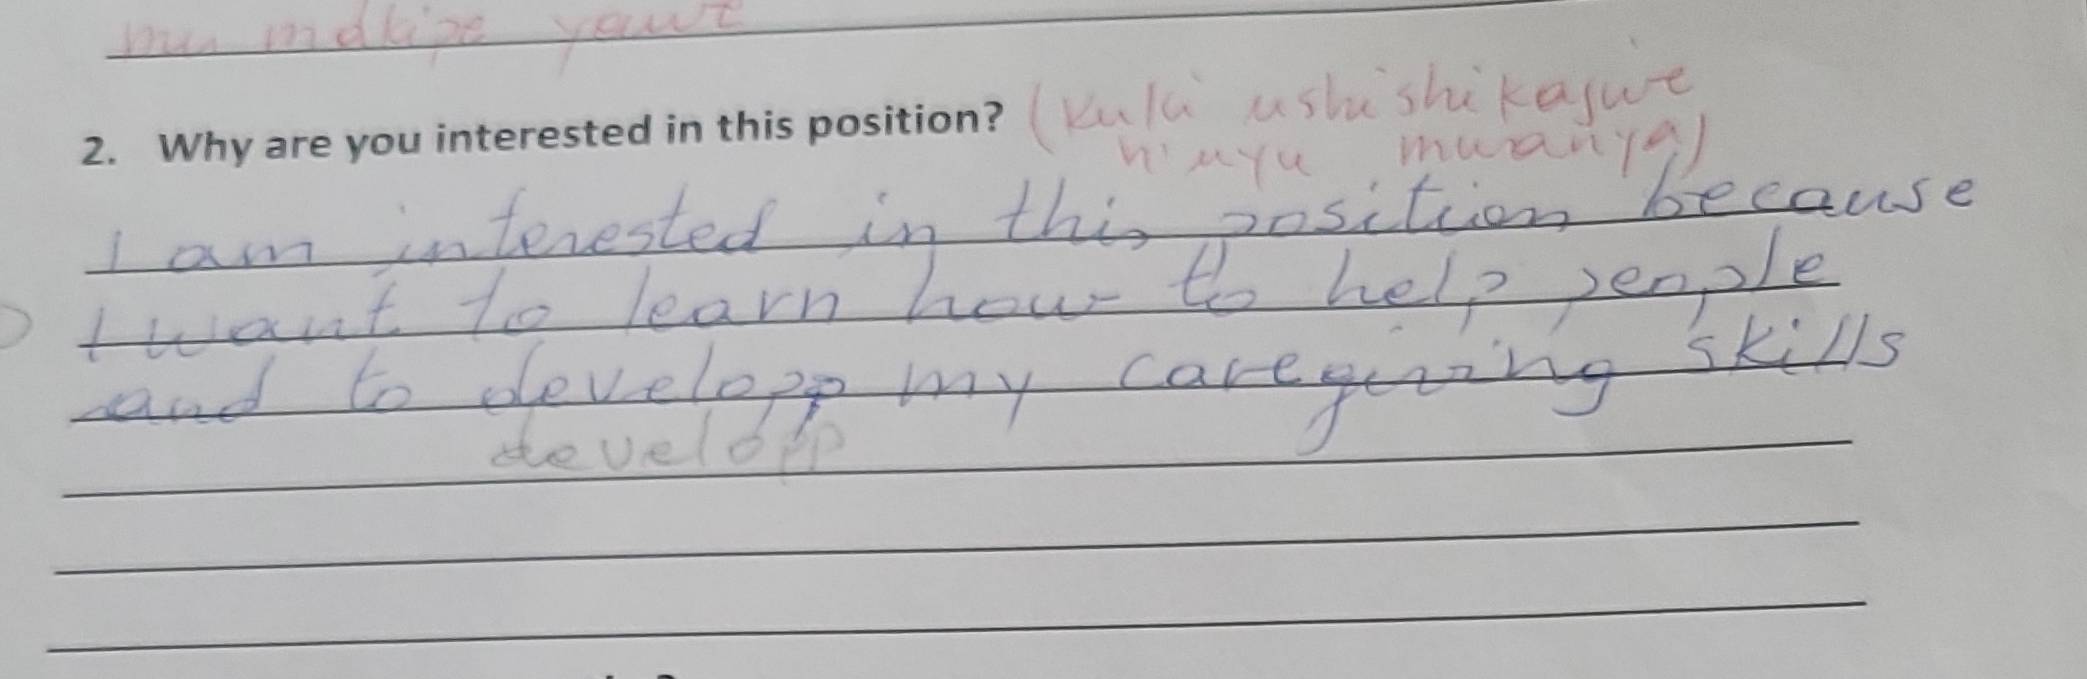 mu makipe yawe
2. Why are you interested in this position? (Kuki ushishikajwe
n'uyu mwanya)
I am interested in this position because
I want to learn how to help people
and to developp my caregiving skills
developp